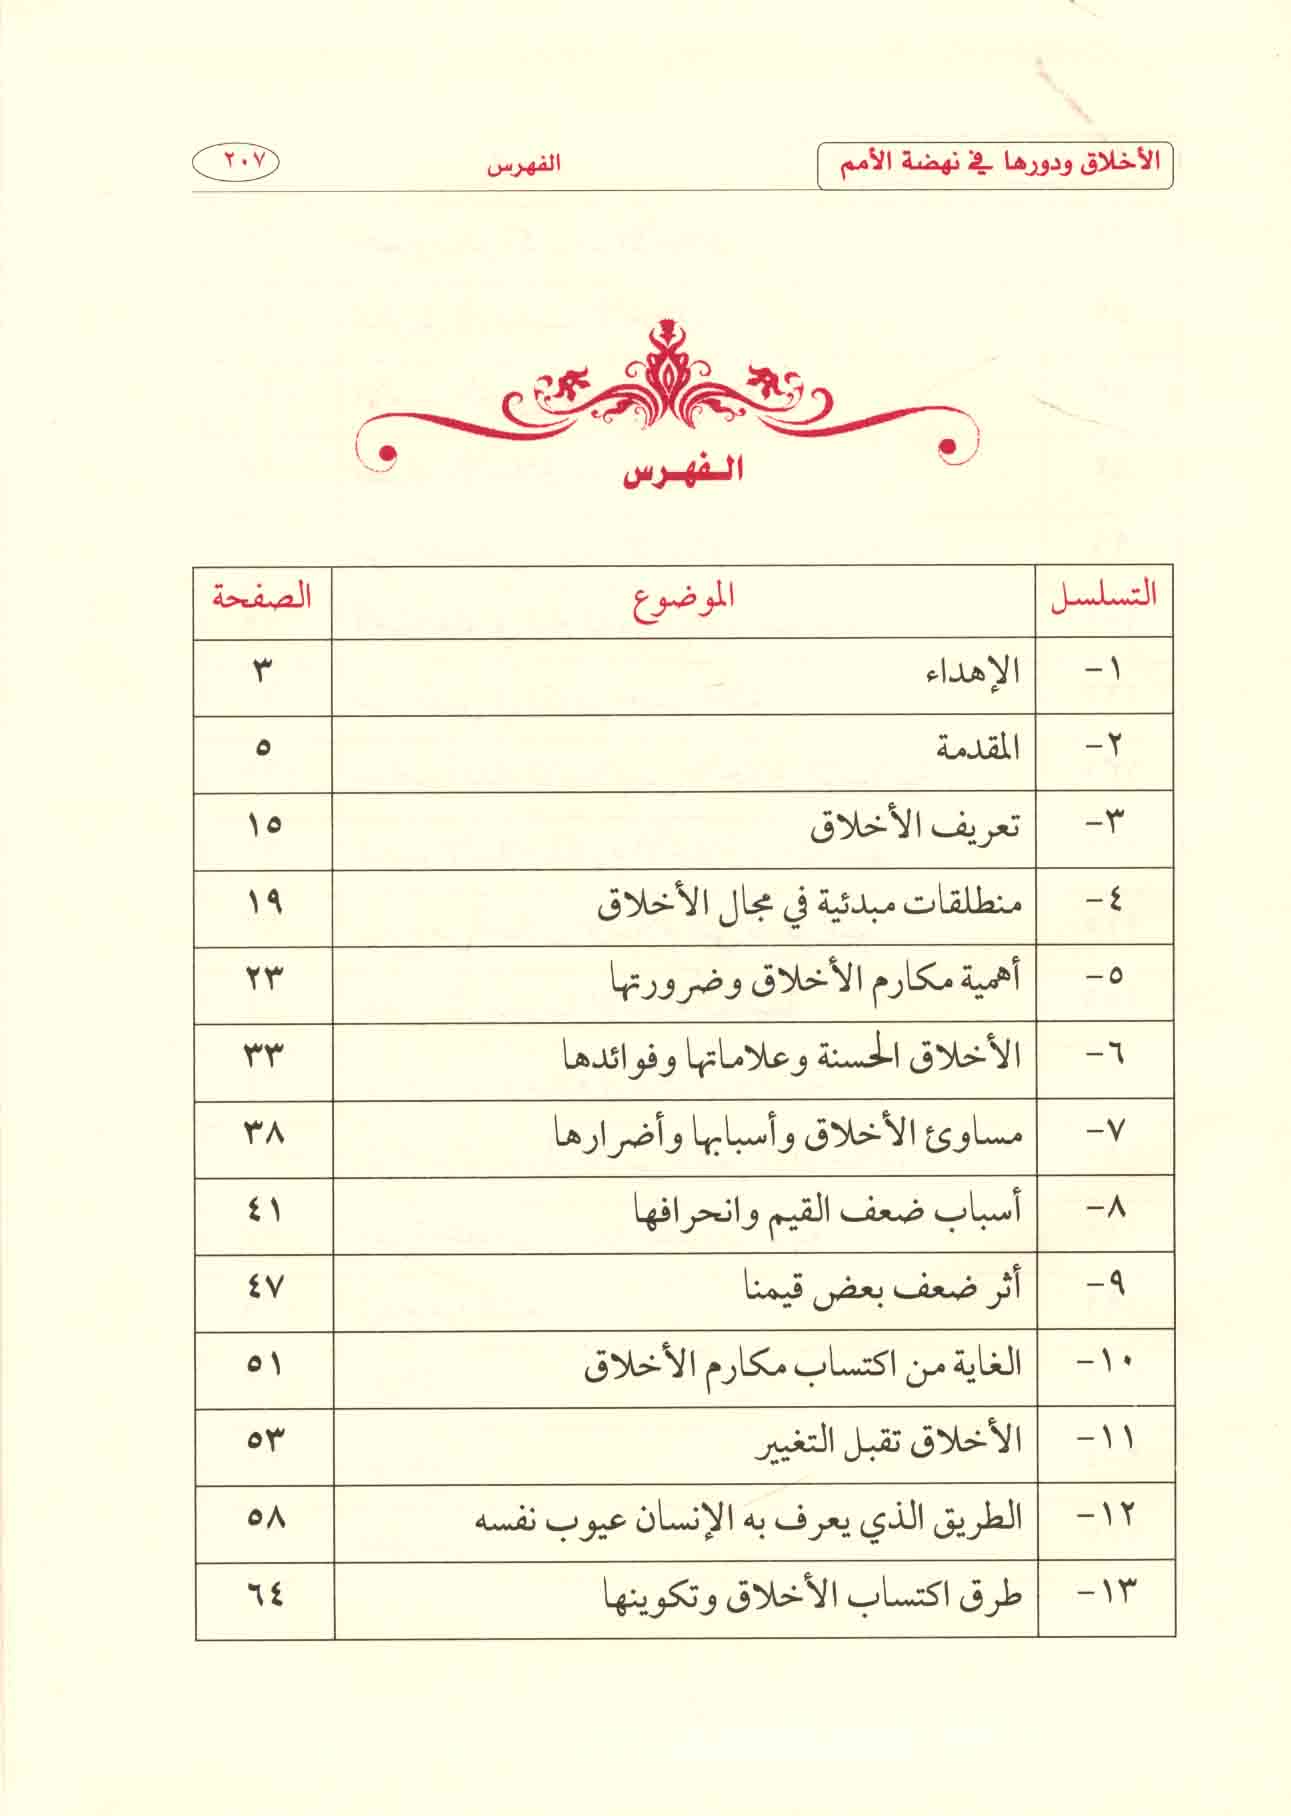 الأخلاق ودورها في نهضة الأمم الفهرس ٢٠٧
الفهرس
التسلسل الموضوع الصفحة
١- الإهداء ٣
٢- المقدمة ٥
٣- تعريف الأخلاق ١٥
٤- منطلقات مبدئية في مجال الأخلاق ١٩
٥- أهمية مكارم الأخلاق وضرورتها ٢٣
٦- الأخلاق الحسنة وعلاماتها وفوائدها ٣٣
٧- مساوئ الأخلاق وأسبابها وأضرارها ٣٨
٨- أسباب ضعف القيم وانحرافها ٤١
٩- أثر ضعف بعض قيمنا ٤٧
١٠- الغاية من اكتساب مكارم الأخلاق ٥١
١١- الأخلاق تقبل التغيير ٥٣
١٢- الطريق الذي يعرف به الإنسان عيوب نفسه ٥٨
١٣- طرق اكتساب الأخلاق وتكوينها ٦٤